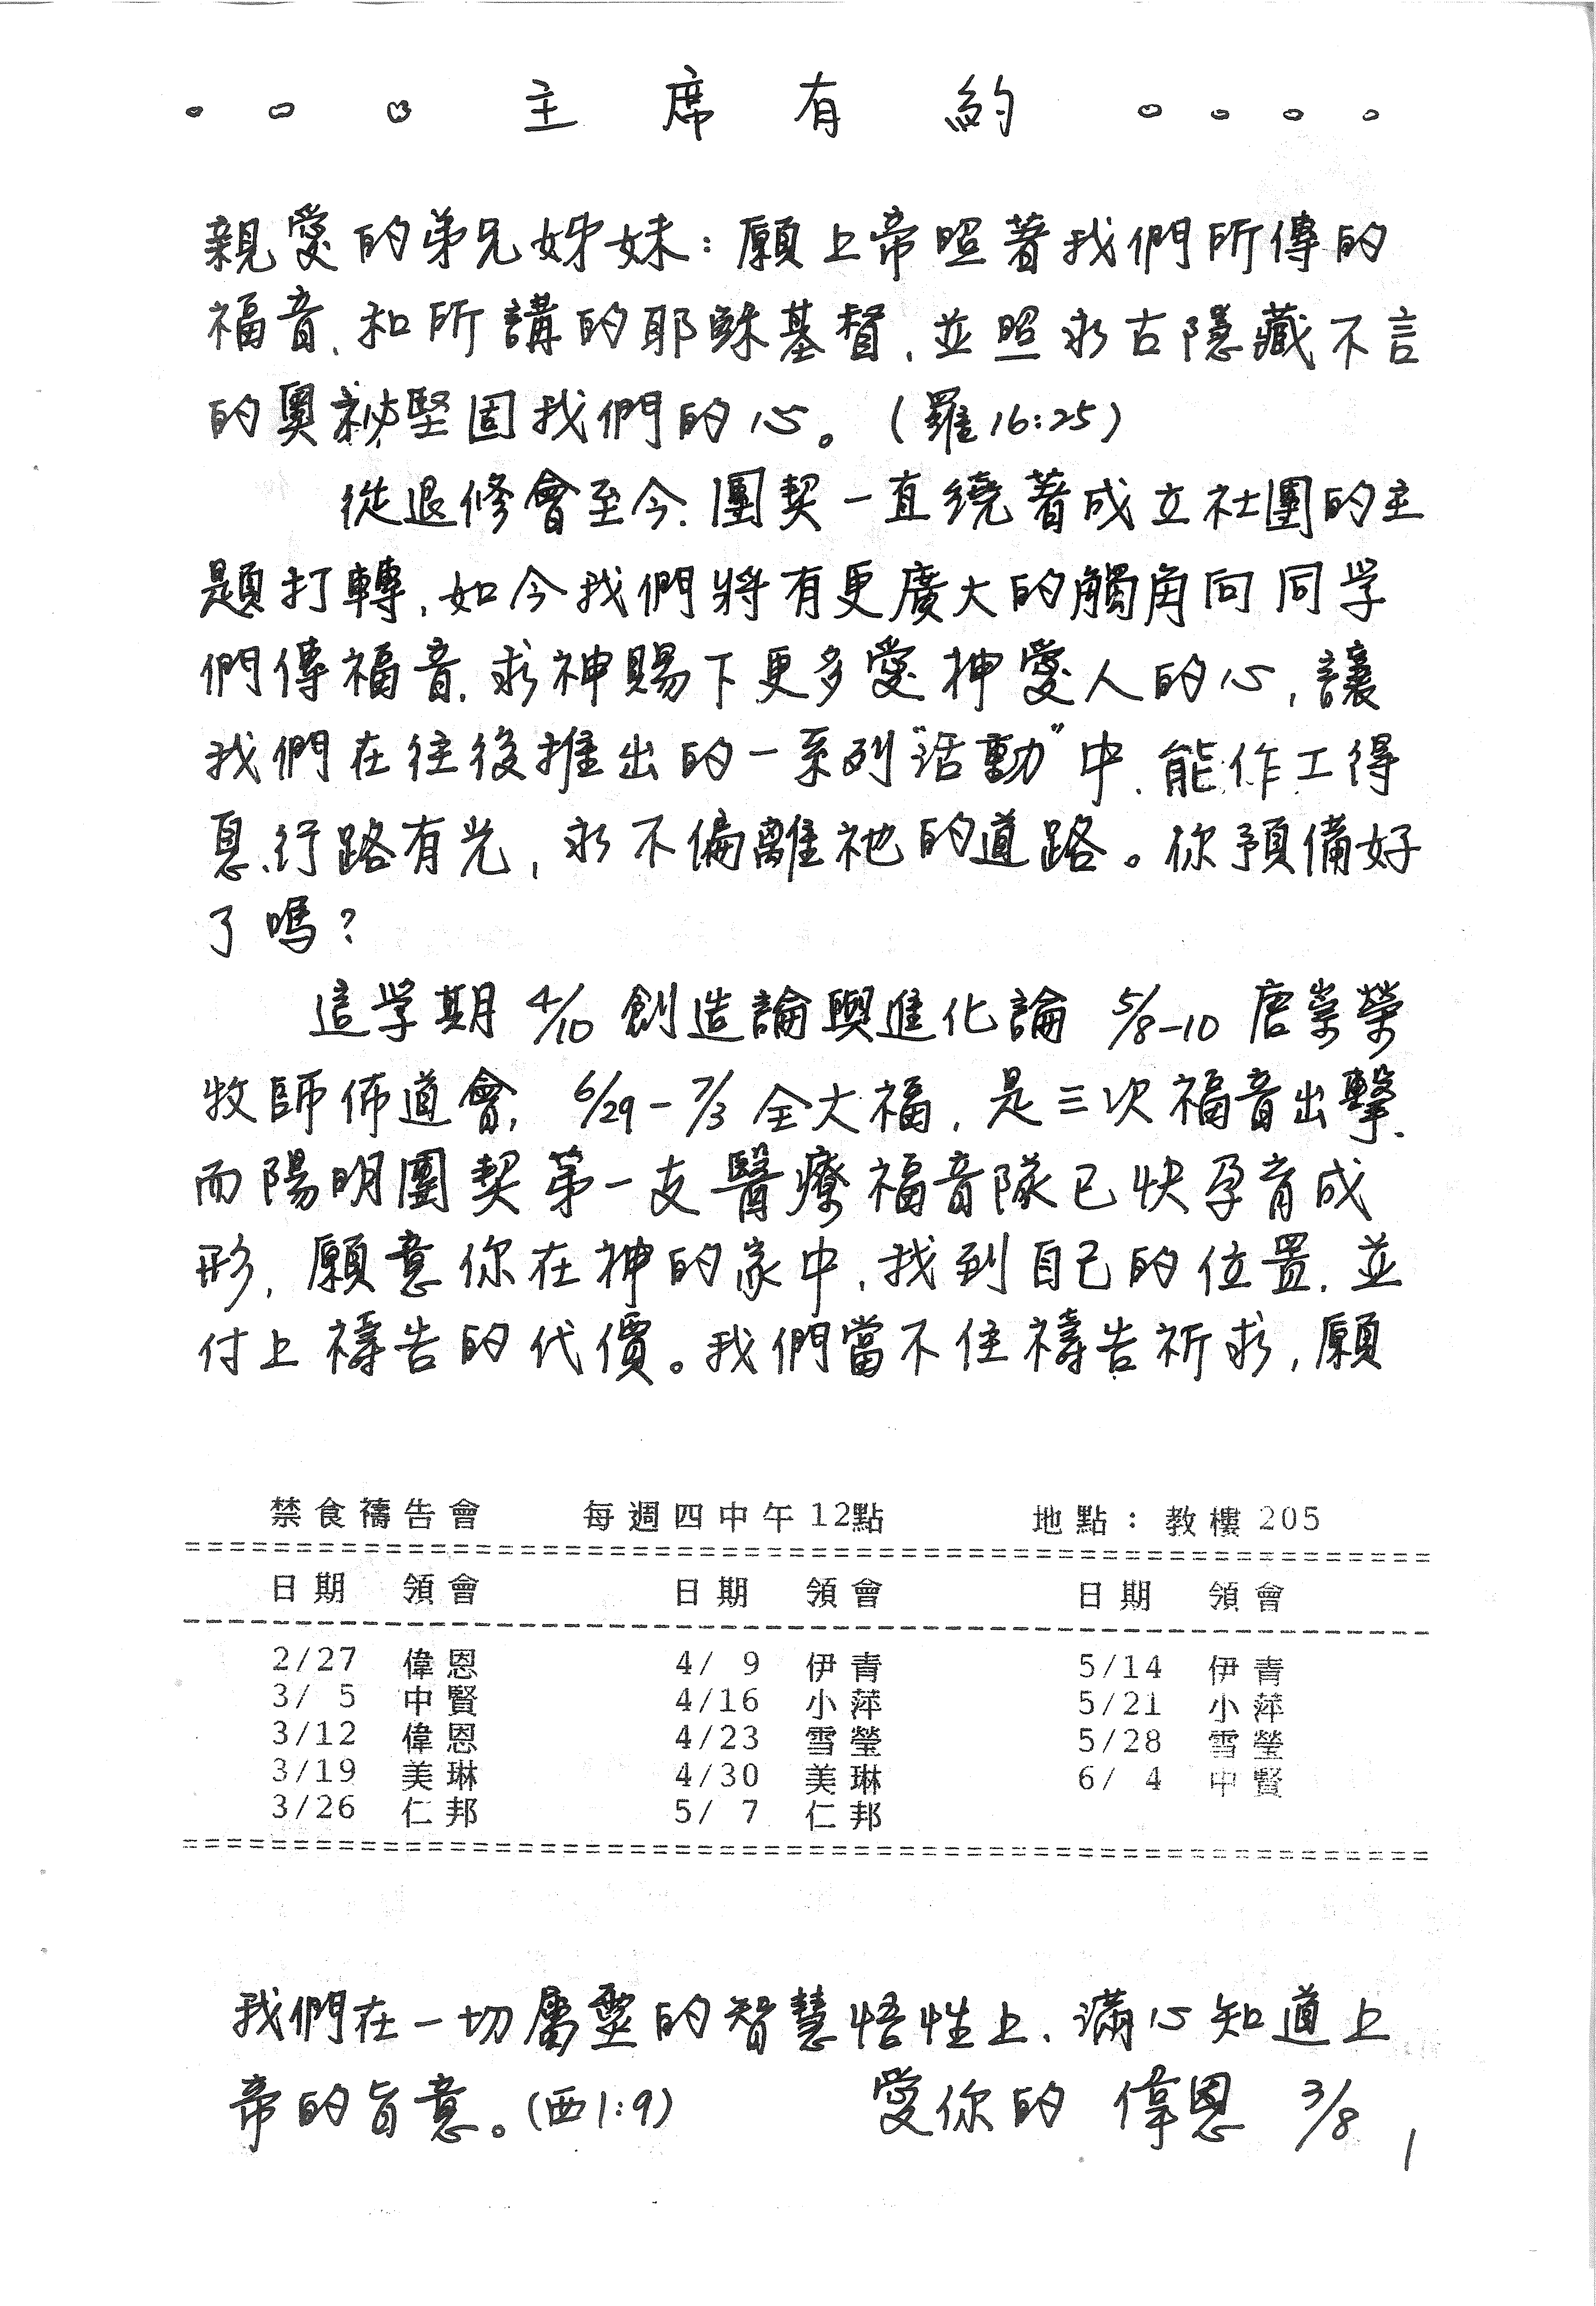 主席有約
親愛的弟兄姊妹：願上帝照著我們所傳的
福音、和所講的耶穌基督、並照永古隱藏不言
的奧祕堅固我們的心。（羅16:25）
從退修會至今、團契一直繞著成立社團的主
題打轉，如今我們將有更廣大的觸角向同学
們傳福音，求神賜下更多愛神愛人的心，讓
我們在往後推出的一系列“活動”中、能作工得
息、行路有光，永不偏離祂的道路。你預備好
了嗎？
這学期 4/10 創造論與進化論 5/8-10 唐崇榮
牧師佈道會，6/29-7/3 全大福，是三次福音出擊，
而陽明團契第一支醫療福音隊已快孕育成
形，願意你在神的家中，找到自己的位置，並
付上禱告的代價。我們當不住禱告祈求，願
禁食禱告會 每週四中午12點 地點：教樓205
日期 領會 日期 領會 日期 領會
2/27 偉恩 4/ 9 伊青 5/14 伊青
3/ 5 中賢 4/16 小萍 5/21 小萍
3/12 偉恩 4/23 雪瑩 5/28 雪瑩
3/19 美琳 4/30 美琳 6/ 4 中賢
3/26 仁邦 5/ 7 仁邦
我們在一切屬靈的智慧悟性上、滿心知道上
帝的旨意。(西1:9) 愛你的 偉恩 3/8
1